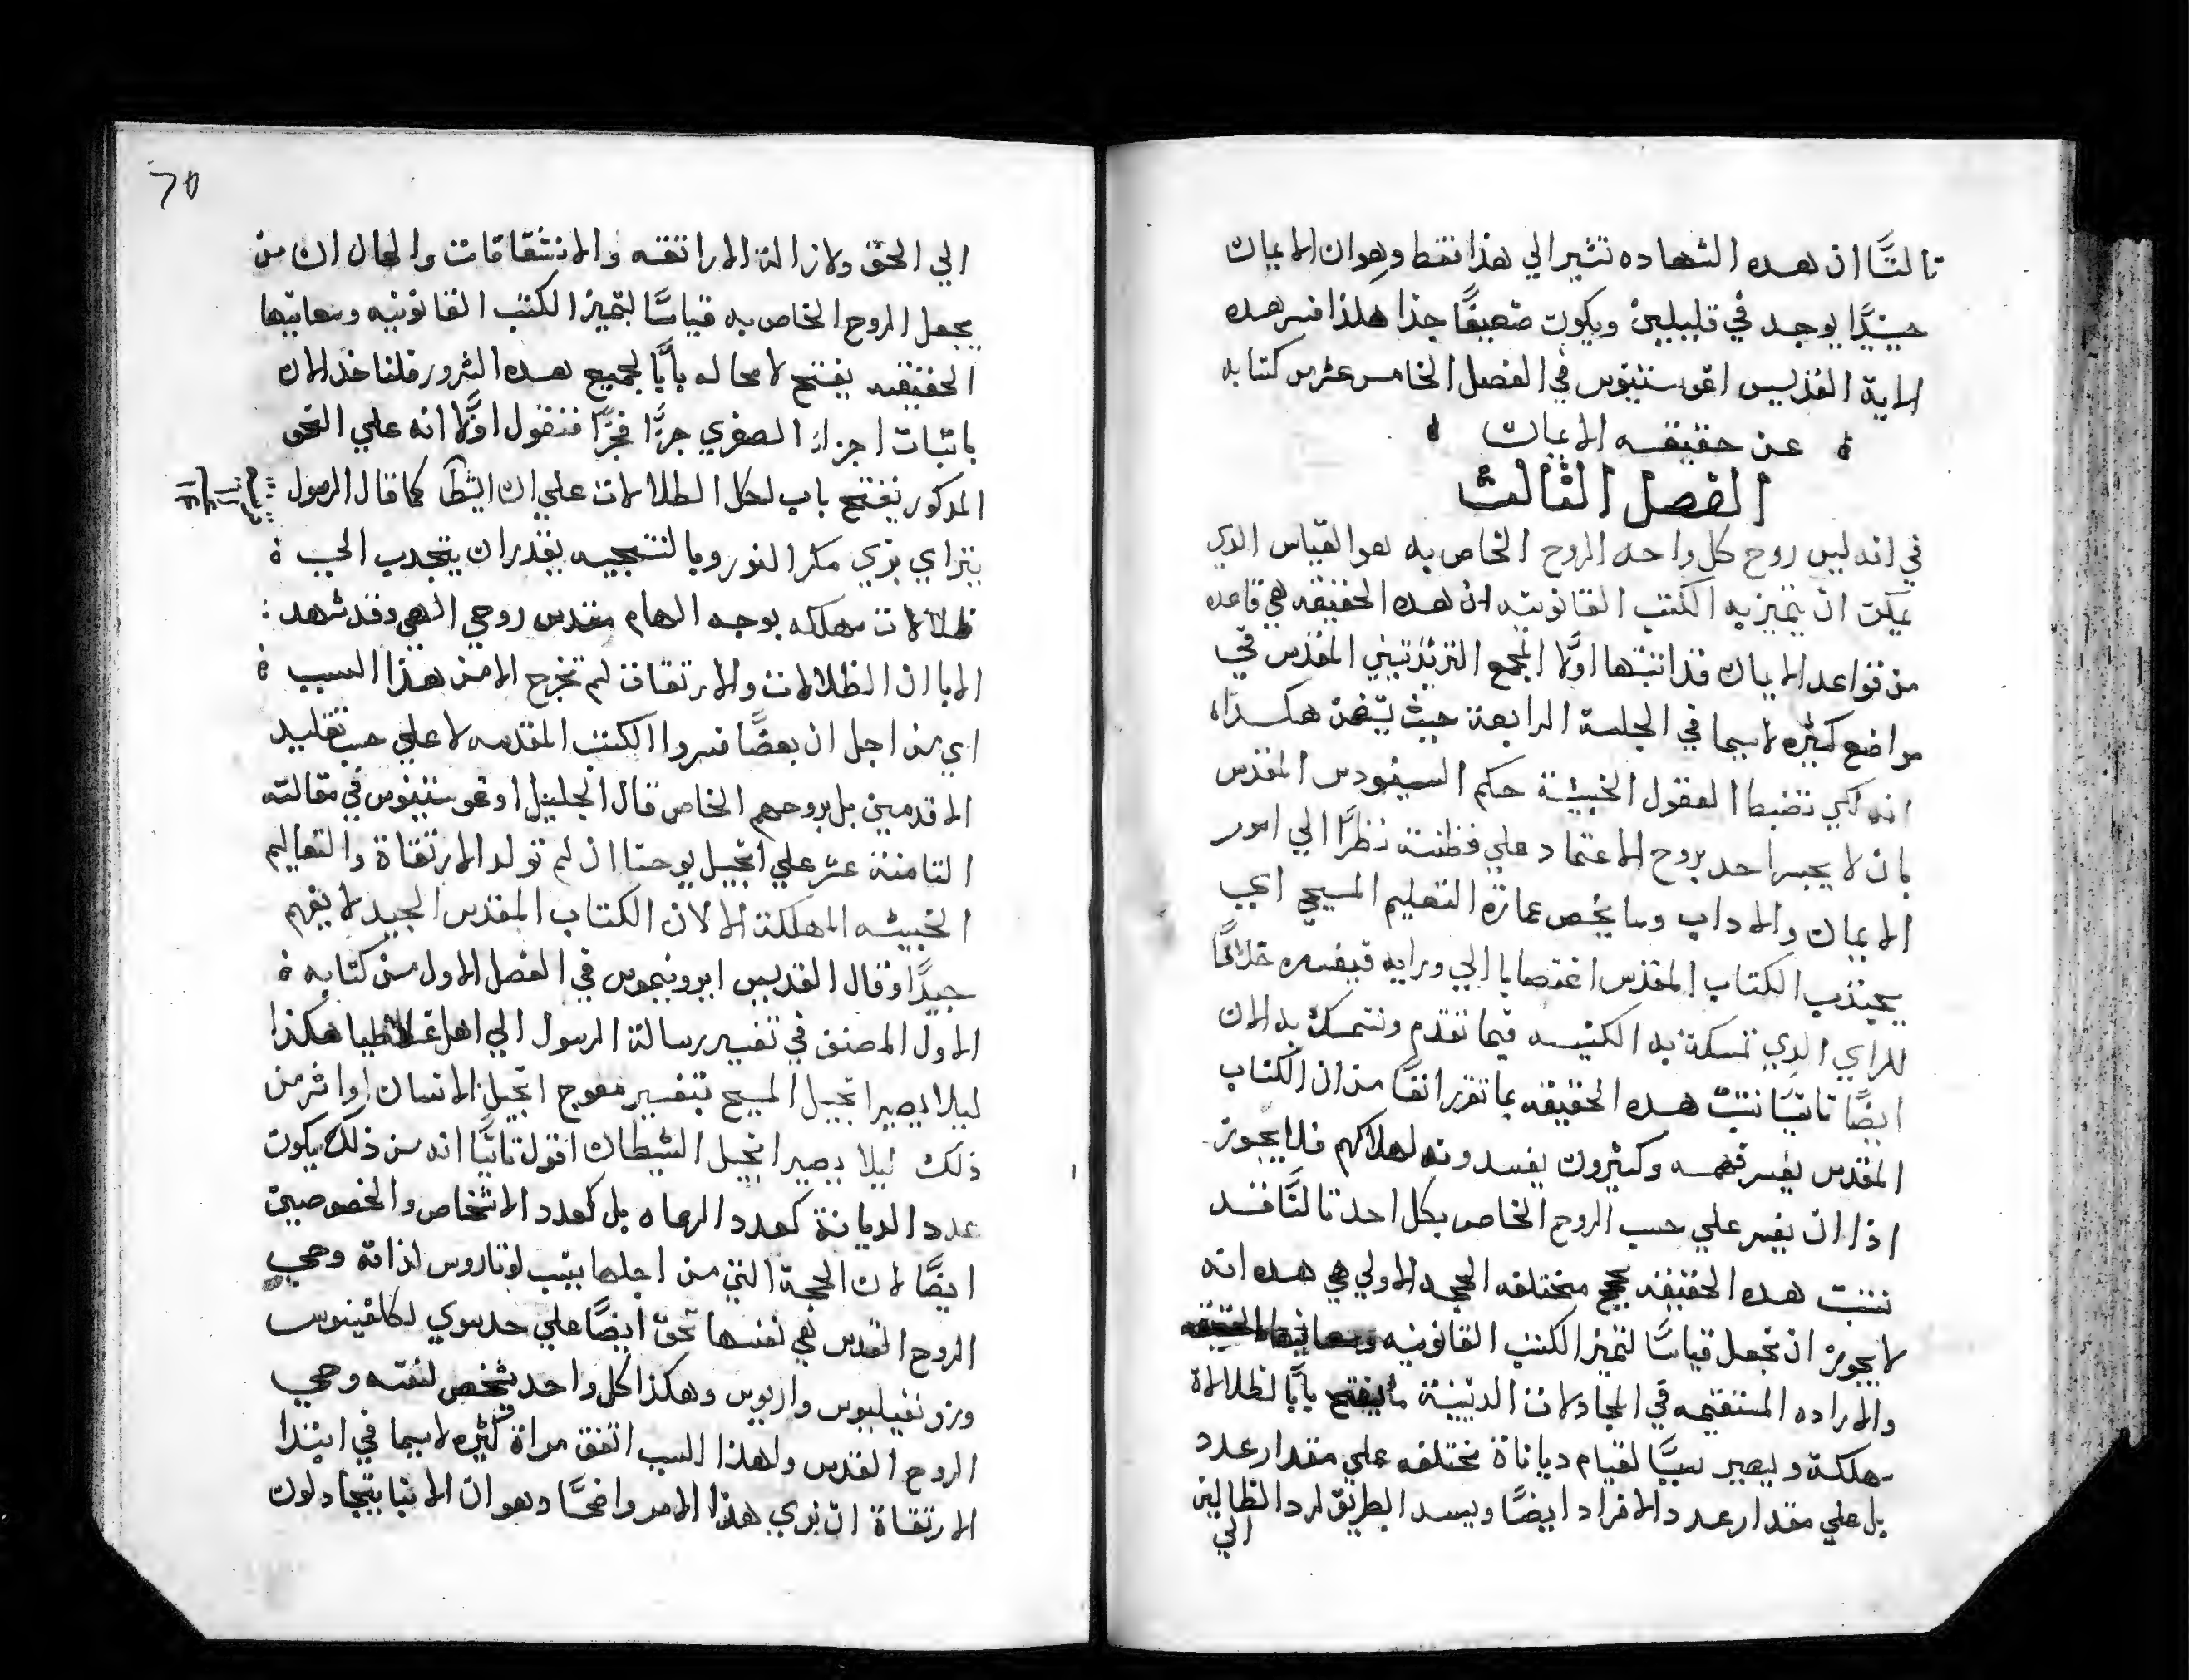 تالتًا ان هده الشهاده تشير الي هذا فقط وهو ان الايمان
حينيدًا يوجد في قليلين ويكون ضعيفًا جدًا هكذا فسر هده
الاية القديس اغوستينوس في الفصل الخامس عشر من كتابه
عن حقيقه الايمان
الفصل الثالث
في انه ليس روح كل واحد الروح الخاص به هو القياس الدي
يمكن ان يتميز به الكتب القانونيه ان هده الحقيقه هي قاعده
من قواعد الايمان قد اتبتها اولًا المجمع التريدنتيني المقدس في
مواضع كثيره لاسيما في الجلسة الرابعة حيث يتضمن هكدا
انه لكي تضبط العقول الخبيثة حكم السينودس المقدس
بان لا يجسر احد بروح الاعتماد علي فطنته نظرًا الي امور
الايمان والاداب وما يخص عمارة التعليم المسيحي اي
يجتذب الكتاب المقدس اغتصابا الي ورايه فيفسره خلافًا
للراي الدي تمسكة به الكنيسه فيما تقدم وتتمسك به الان
ايضًا تانيًا نتبت هده الحقيقه بما تقرر انفًا من ان الكتاب
المقدس يفسر فهمه وكثيرون يفسدونه لهلاكهم فلا يجوز
اذا ان يفسر علي حسب الروح الخاص بكل احد تالتًا قد
نتبت هده الحقيقه بحجج مختلفه الحجه الاولي هي هده انه
لا يجوز ان نجعل قياسًا لتميز الكتب القانونيه ومعانيها الحقيقه
والاراده المستقيمه في المجادلات الدينية ما يفتح بابًا لظلالاة
مهلكة ويصير سببًا لقيام دياناة مختلفه علي مقدار عدد
بل علي مقدار عدد الافراد ايضًا ويسد الطريق لرد الظالين
الي
70
الي الحق ولازالة الاراتقه والانشقاقات والحال ان من
يجعل الروح الخاص به قياسًا لتميز الكتب القانونيه ومعانيها
الحقيقيه يفتح لا محاله بابًا لجميع هده الشرور فلناخذ الان
باتبات اجزاء الصغري جزًا فجزًا فنقول اولًا انه علي النحو
المدكور يفتح باب لكل الظلالات علي ان الشيطان كما قال الرسول
يتراي بزي ملاك النور وبالنتيجيه يقدر ان يجدب الي
ظلالات مهلكه بوجه الهام مقدس روحي الهي وقد شهد
الابا ان الظلالات والارتقات لم تخرج الا من هذا السبب
اي من اجل ان بعضًا فسروا الكتب المقدسه لا علي حسب تقليد
الاقدمين بل بروحهم الخاص قال الجليل اوغوستينوس في مقالته
التامنة عشر علي انجيل يوحنا ان لم تولد الارتقاة والتعاليم
الخبيثه المهلكة الا لان الكتاب المقدس الجيد لا يفهم
جيدًا وقال القديس ايرونيموس في الفصل الاول من كتابه
الاول المصنف في تفسير رسالة الرسول الي اهل غلاطيا هكذا
ليلا يصير انجيل المسيح بتفسير معوج انجيل الانسان او اشر من
ذلك ليلا يصير انجيل الشيطان اقول تانيًا انه من ذلك يكون
عدد الديانة كعدد الرعاه بل كعدد الاشخاص والخصوصين
ايضًا لان الحجة التي من اجلها ينسب لوتاروس لذاته وحي
الروح القدس هي نفسها تحق ايضًا علي حد سوي لكالفينوس
وزونفيليوس واريوس وهكذا كل واحد يشخص لنفسه وحي
الروح القدس ولهذا السبب اتفق مراة كثيره لاسيما في ابتدا
الارتقاة ان نري هذا الامر واضحًا وهو ان الابنا يتجادلون